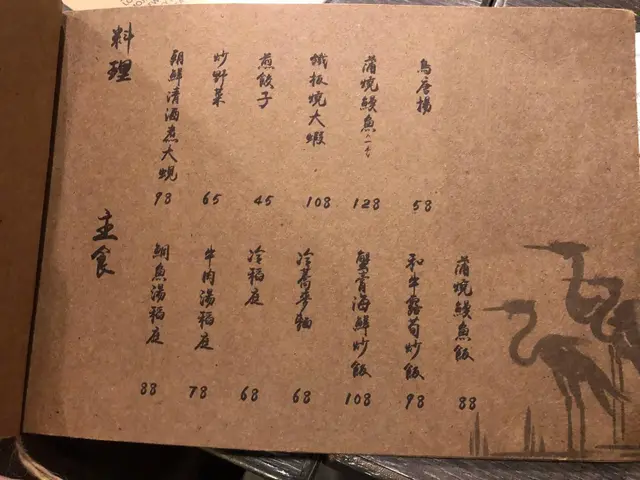 料理
朝鮮清酒煮大蜆
98
炒野菜
65
煎餃子
45
鐵板燒大蝦
108
蒲燒鰻魚
128
鳥唐揚
58
主食
鯛魚湯稲庭
88
牛肉湯稲庭
78
冷稲庭
68
冷蕎麥麵
68
蟹膏海鮮炒飯
108
和牛露荀炒飯
98
蒲燒鰻魚飯
88